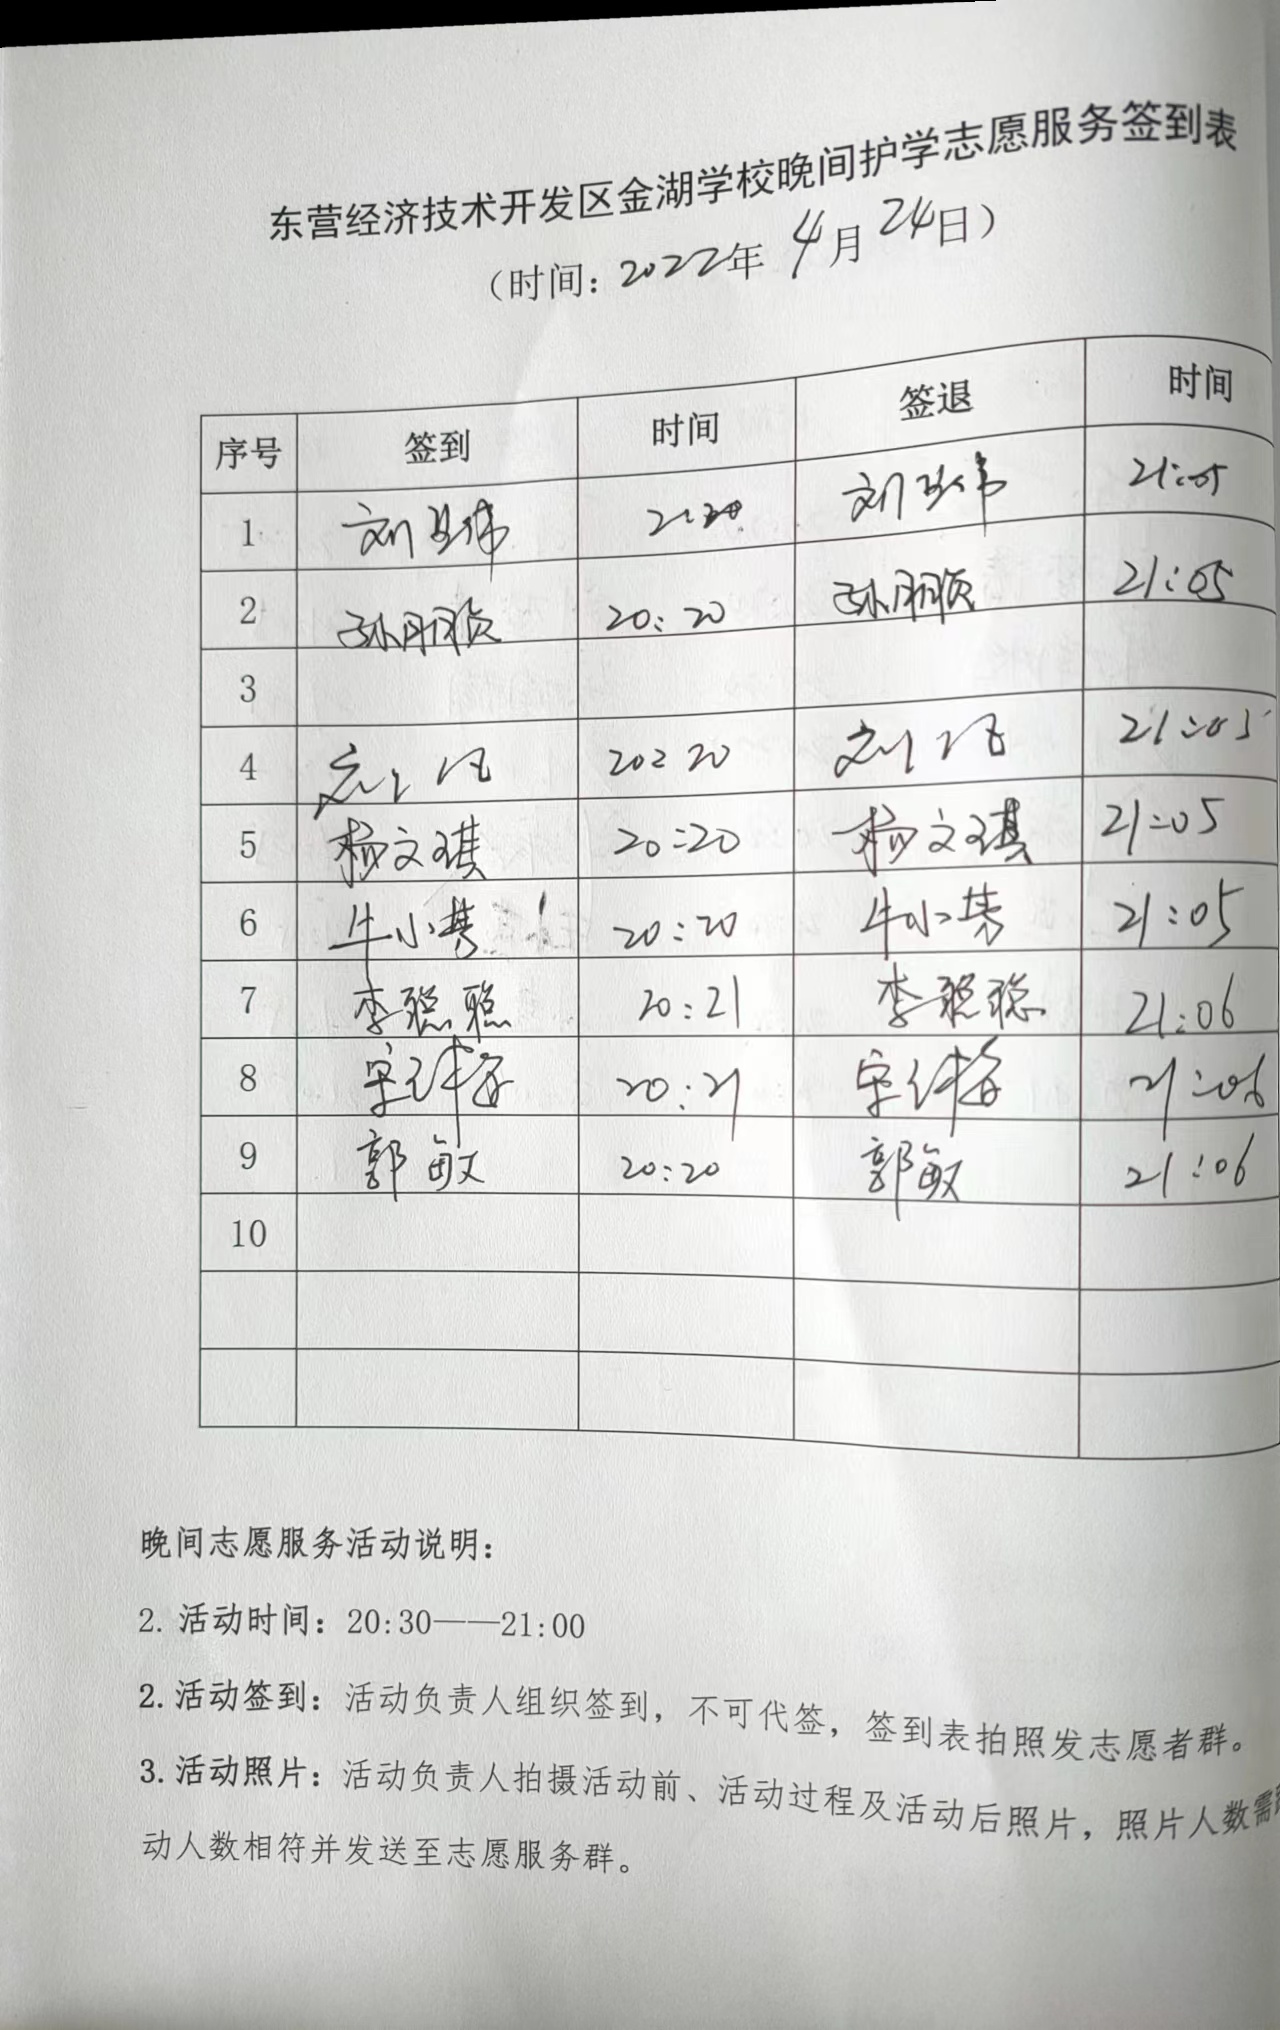 东营经济技术开发区金湖学校晚间护学志愿服务签到表
（时间：2022年 4月 24日）
序号 签到 时间 签退 时间
1 刘 刘 21:05
2 孙朋颀 20:20 孙朋颀 21:05
3
4 20:20 刘 21:05
5 杨文琪 20:20 杨文琪 21:05
6 牛小慧 20:20 牛小 21:05
7 李聪聪 20:21 李聪聪 21:06
8 宋 20:21 宋 21:06
9 郭敏 20:20 郭敏 21:06
10
晚间志愿服务活动说明：
2. 活动时间：20:30——21:00
2. 活动签到：活动负责人组织签到，不可代签，签到表拍照发志愿者群。
3. 活动照片：活动负责人拍摄活动前、活动过程及活动后照片，照片人数需
动人数相符并发送至志愿服务群。